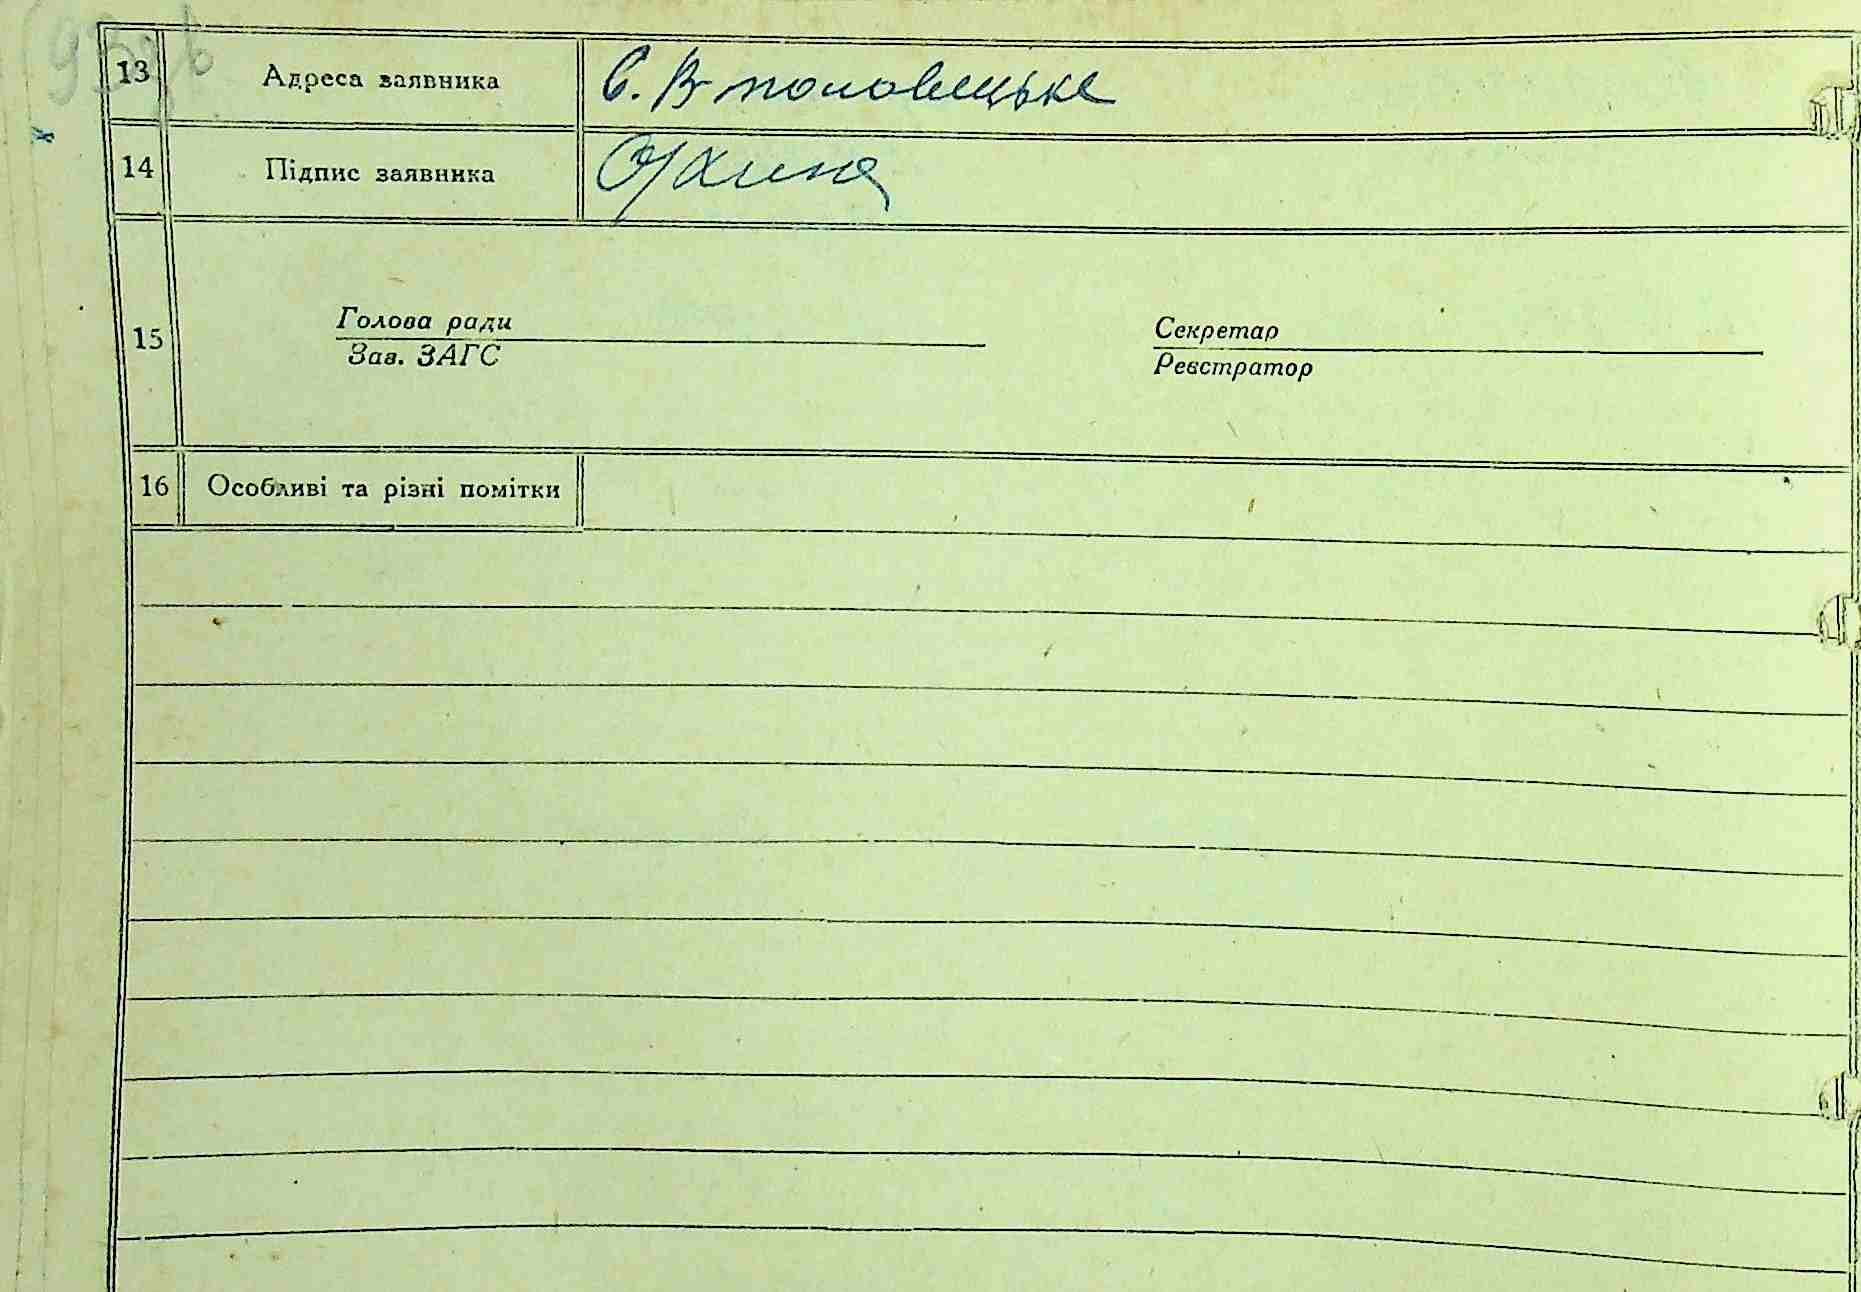 13 Адреса заявника С. В-половецьке
14 Підпис заявника
15 Голова ради Секретар
Зав. ЗАГС Реєстратор
16 Особливі та різні помітки